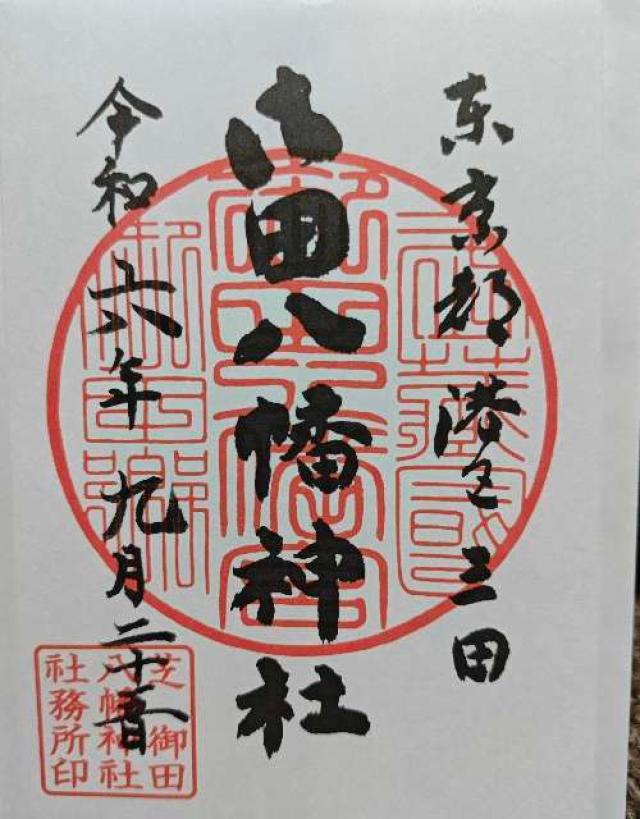 東京都港区三田
御田八幡神社
令和六年九月二十五日
芝御田
八幡神社
社務所印